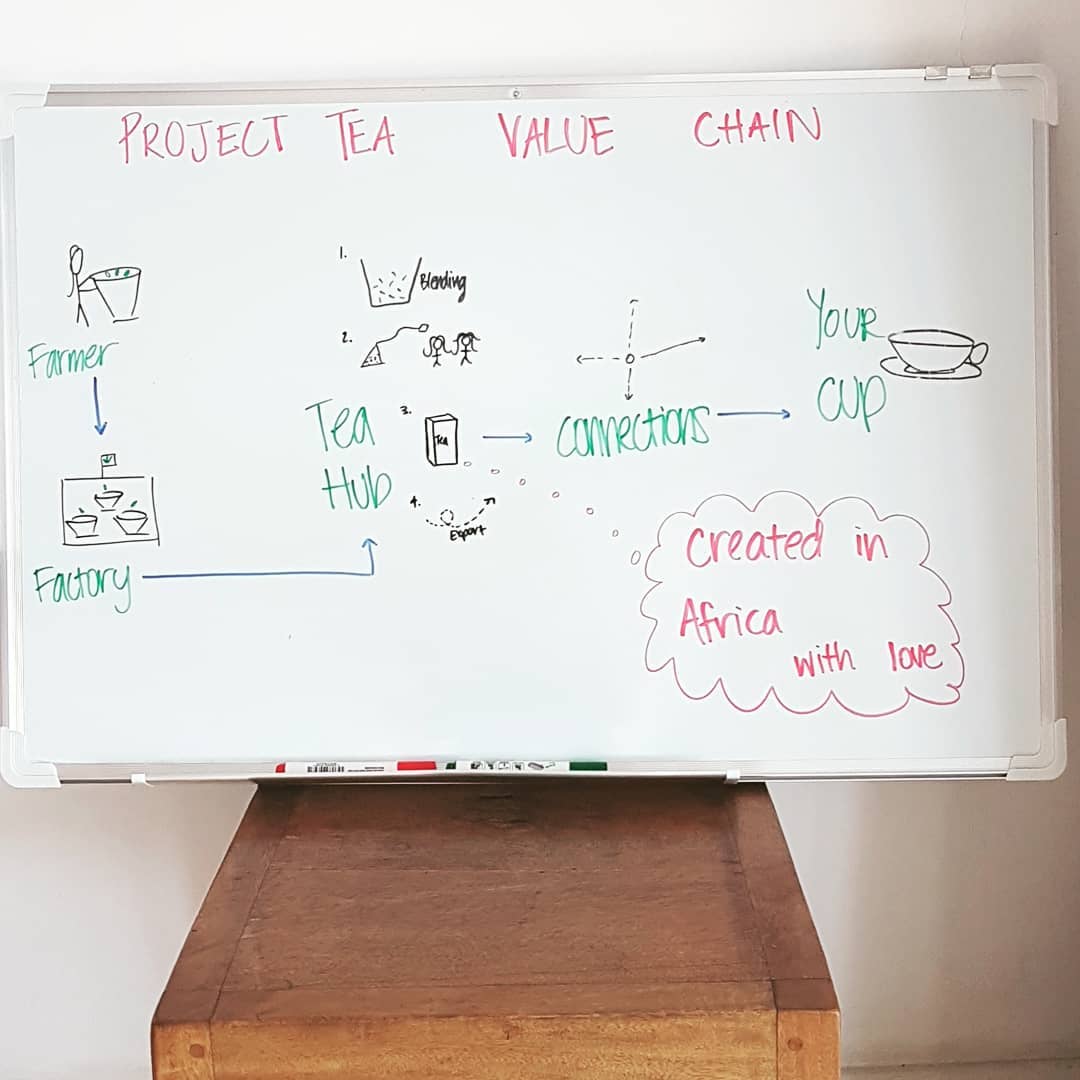 PROJECT TEA VALUE CHAIN
Farmer
Factory
1.
Blending
2.
Tea
Hub
3.
Tea
4.
Export
connections
Your
cup
created in
Africa
with love